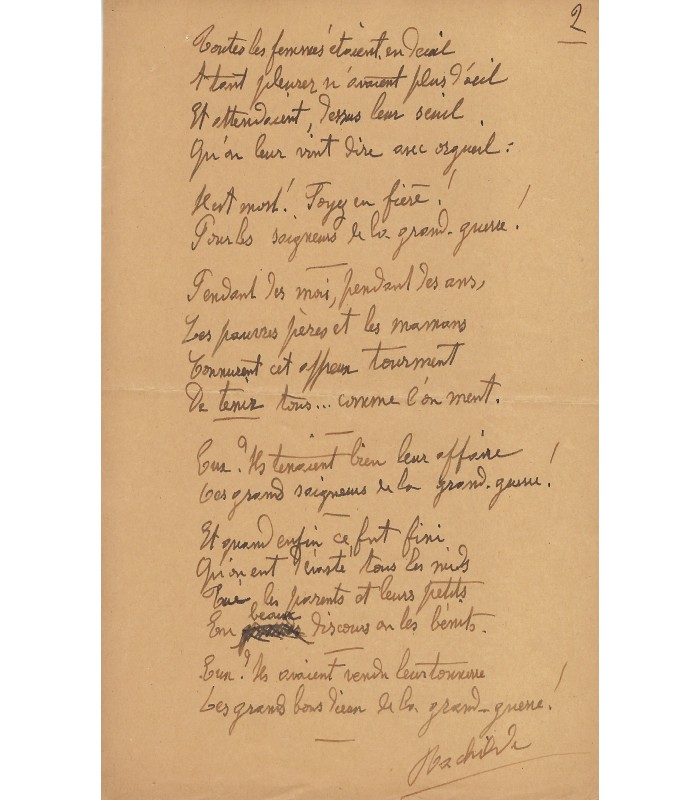 2
Toutes les femmes étaient en deuil
A tant pleurer n'avaient plus d'œil
Et attendaient, dessus leur seuil
Qu'on leur vint dire avec orgueil :
Il est mort! Soyez en fière!
Pour les saigneurs de la grand-guerre!
Pendant des mois, pendant des ans,
Les pauvres pères et les mamans
Connurent cet affreux tourment
De tenir tous... comme l'on ment.
Eux? Ils tenaient bien leur affaire
Les grands saigneurs de la grand-guerre!
Et quand enfin ce fut fini
Qu'on eut dévasté tous les nids
Tué les parents et leurs petits
En beaux discours on les bénit.
Eux? Ils avaient vendu leur tonnerre
Les grands bons dieux de la grand-guerre!
Rachilde